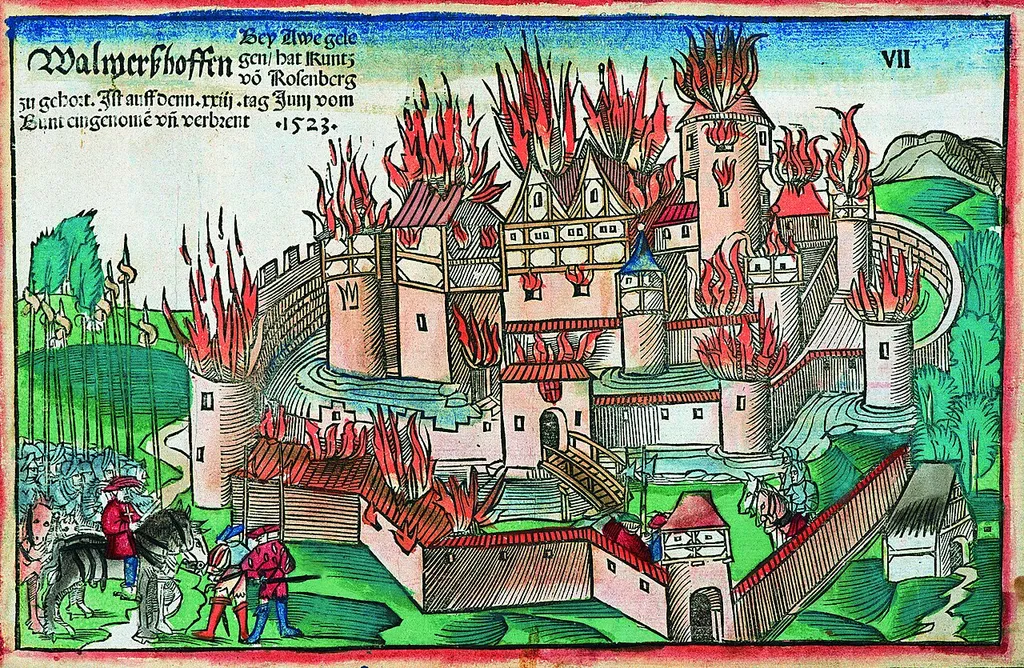 Walmerßhoffen
Bey Awe gele
gen/ hat Kuntz
vō Rosenberg
zu gehort. Ist auff denn .xxiij .tag Junj vom
Bunt eingenomē vñ verbrent .1523.
VII